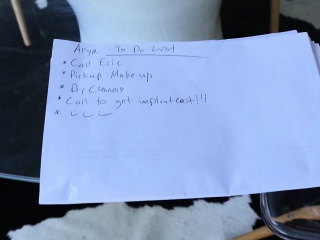 Arya To Do List
* Call Eric
* Pick up Make up
* Dry Cleaners
* Call to get implant cost!!!
*